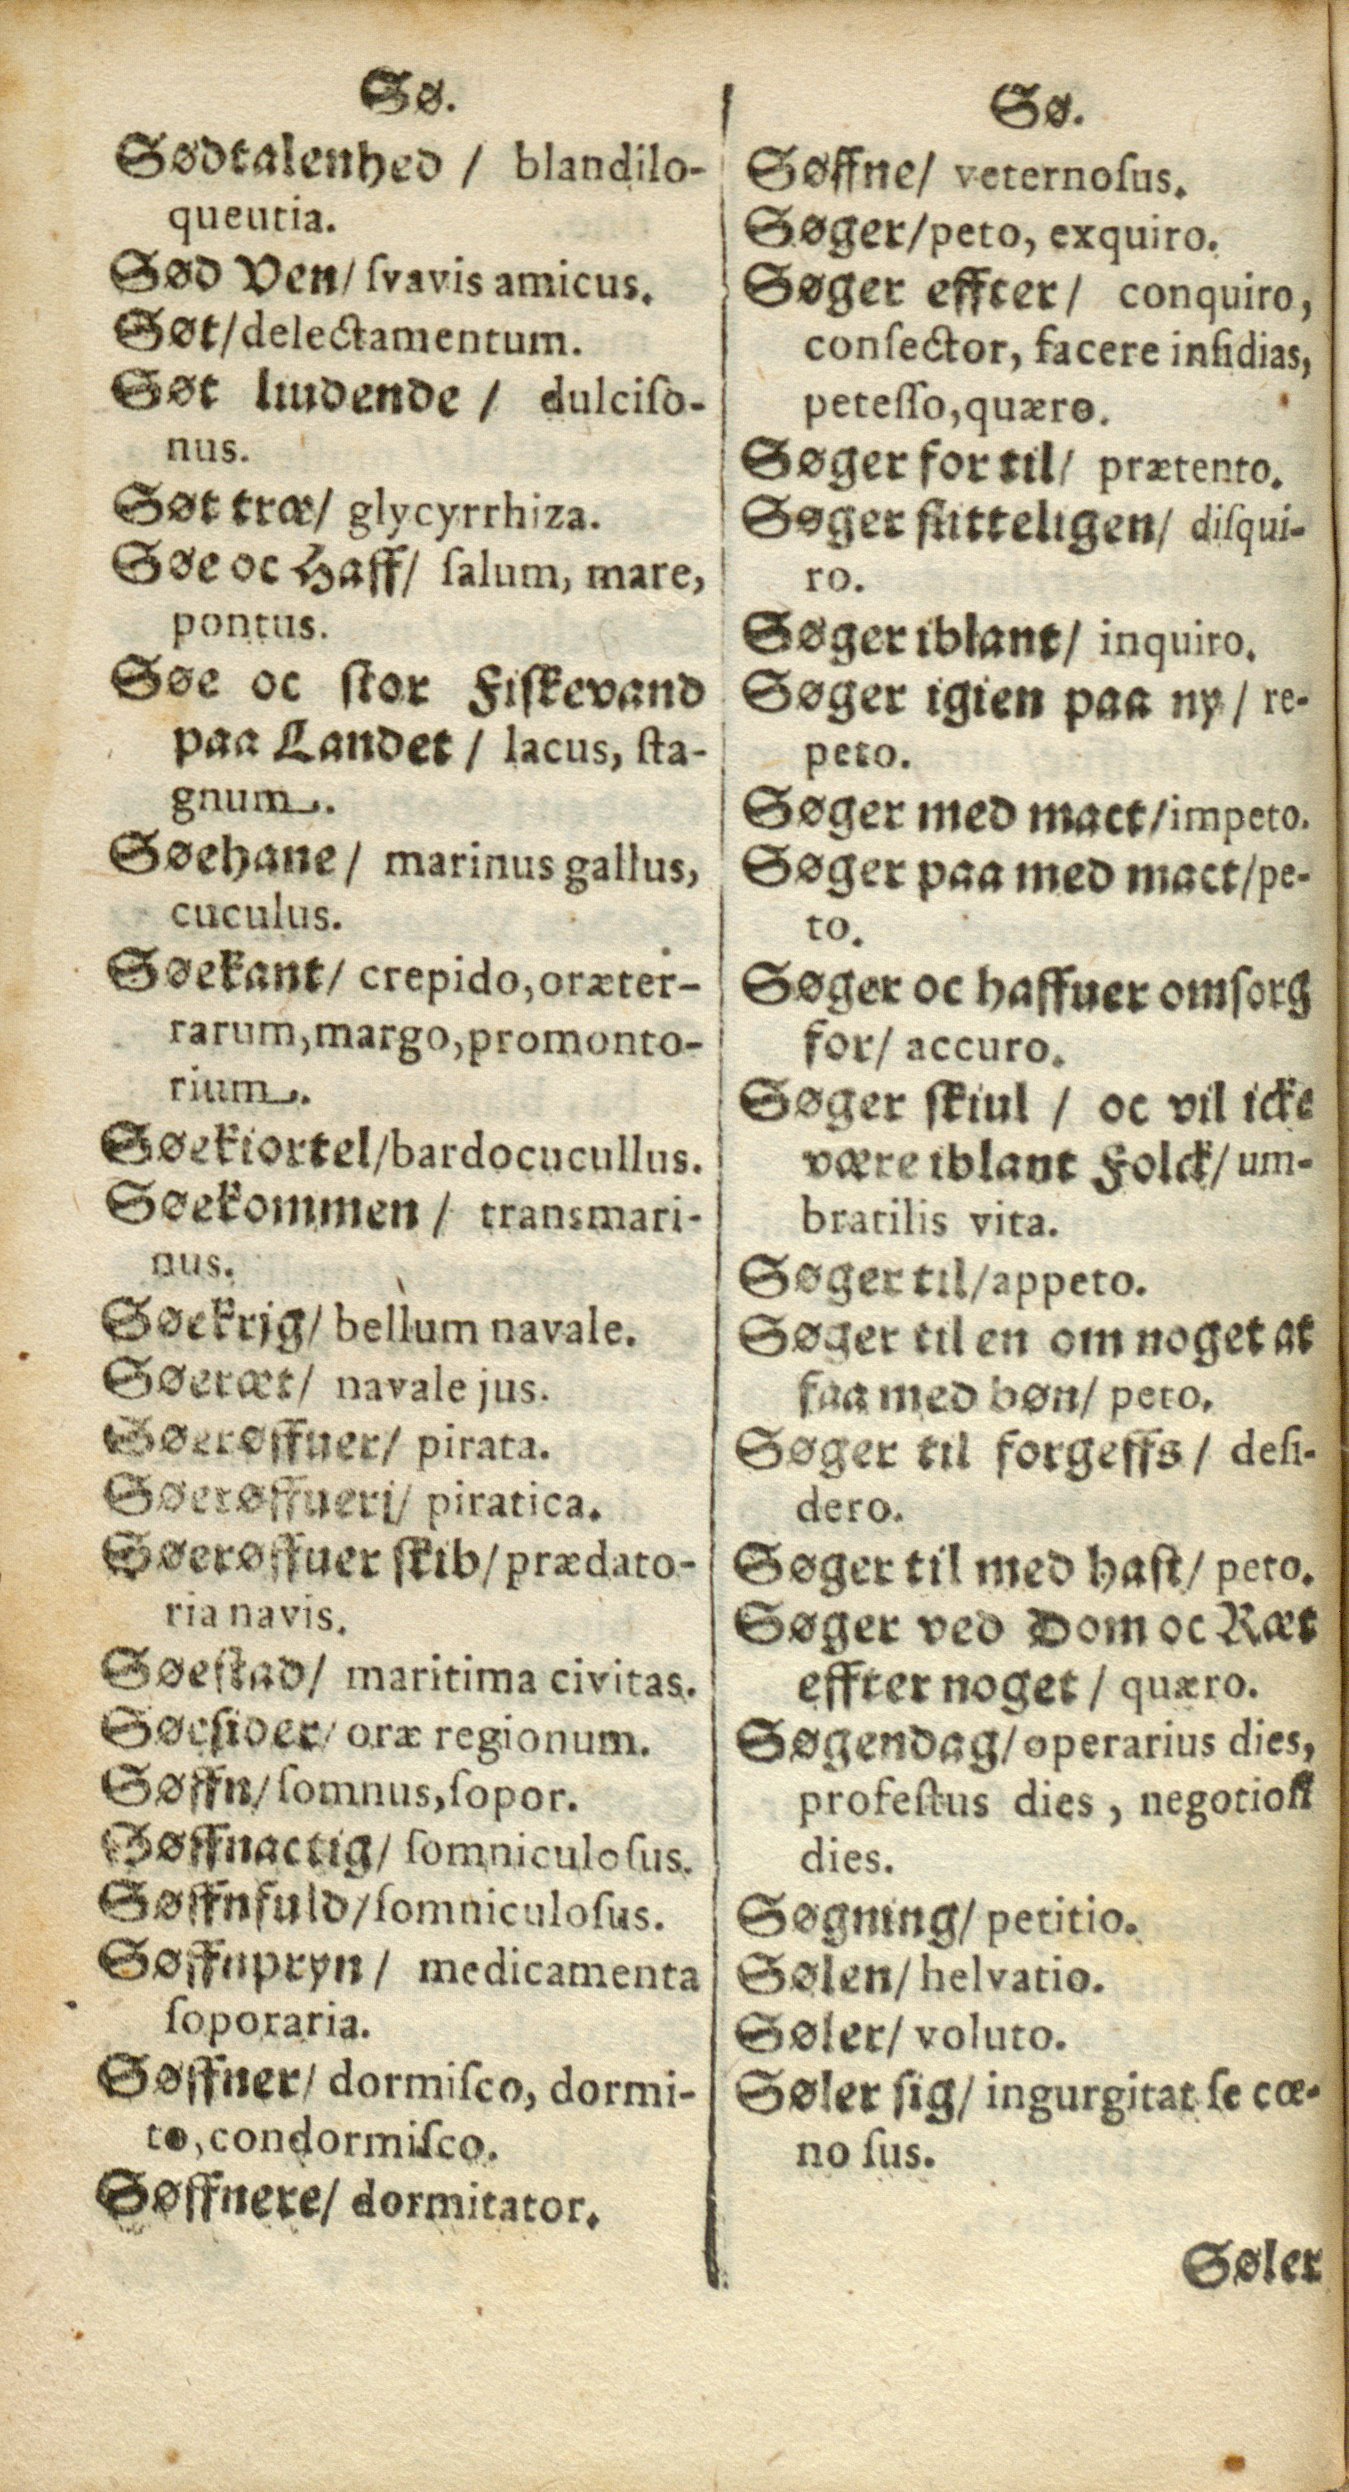 Sø.
Sødtalenhed / blandilo-
queutia.
Sød Ven/ ſvavis amicus.
Søt/delectamentum.
Søt liudende / dulciſo-
nus.
Søt træ/ glycyrrhiza.
Søe oc Haff/ ſalum, mare,
pontus.
Søe oc ſtor Fiſkevand
paa Landet / lacus, ſta-
gnum.
Søehane / marinus gallus,
cuculus.
Søekant/ crepido, oræter-
rarum, margo, promonto-
rium.
Søekiortel/bardocucullus.
Søekommen / transmari-
nus.
Søekrjg/ bellum navale.
Søeræt/ navale jus.
Søerøffuer/ pirata.
Søerøffueri/ piratica.
Søerøffuer ſkib/ prædato-
ria navis.
Søeſtad/ maritima civitas.
Søeſider/ oræ regionum.
Søffn/ ſomnus, ſopor.
Søffnactig/ ſomniculoſus.
Søffnfuld/ſomniculoſus.
Søffnpryn / medicamenta
ſoporaria.
Søffner/ dormiſco, dormi-
to, condormiſco.
Søffnere/ dormitator.
Sø.
Søffne/ veternoſus.
Søger/peto, exquiro.
Søger effter / conquiro,
conſector, facere inſidias,
peteſſo, quæro.
Søger for til/ prætento.
Søger flitteligen/ diſqui-
ro.
Søger iblant/ inquiro.
Søger igien paa ny / re-
peto.
Søger med mact/impeto.
Søger paa med mact/pe-
to.
Søger oc haffuer omſorg
for/ accuro.
Søger ſkiul / oc vil icke
være iblant Folck/ um-
bratilis vita.
Søger til/appeto.
Søger til en om noget at
faa med bøn/ peto.
Søger til forgeffs / deſi-
dero.
Søger til med haſt/ peto.
Søger ved Dom oc Ræt
effter noget / quæro.
Søgendag/ operarius dies,
profeſtus dies, negotioſi
dies.
Søgning/ petitio.
Sølen/ helvatio.
Søler/ voluto.
Søler ſig/ ingurgitat ſe cœ-
no ſus.
Søler